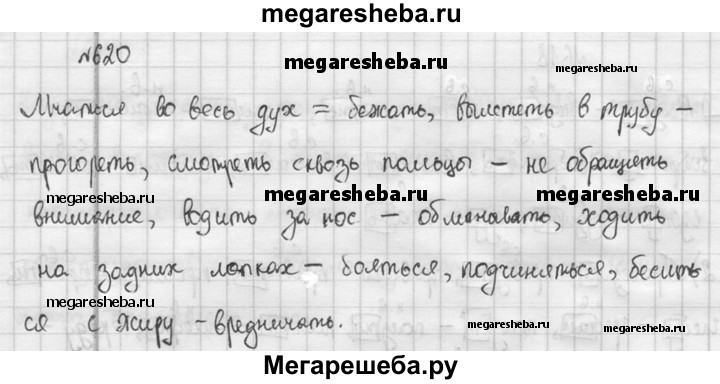 megaresheba.ru
№620
megaresheba.ru
megaresheba.ru
Мчаться во весь дух = бежать, вылететь в трубу –
прогореть, смотреть сквозь пальцы – не обращать
megaresheba.ru
megaresheba.ru
megaresheba.ru
внимание, водить за нос – обманывать, ходить
на задних лапках – бояться, подчиняться, бесить
megaresheba.ru
megaresheba.ru
ся с жиру – вредничать.
megaresheba.ru
megaresheba.ru
Мегарешеба.ру